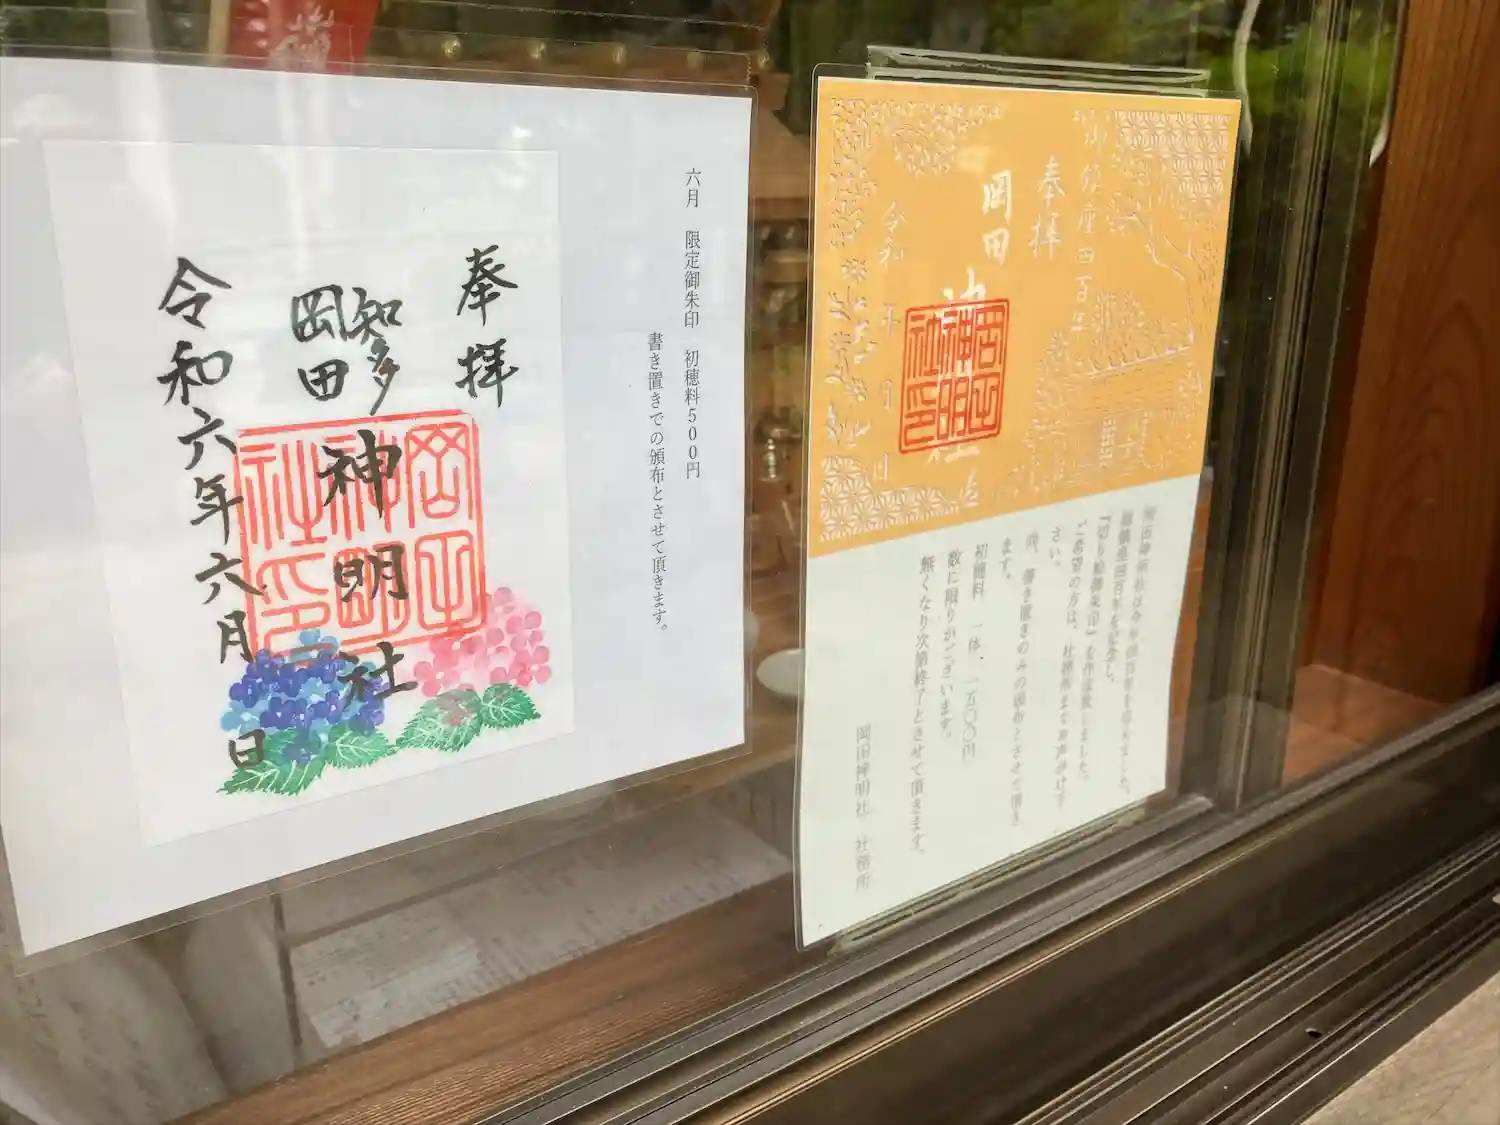 六月　限定御朱印　初穂料500円
書き置きでの頒布とさせて頂きます。
奉拝
知多
岡田
神明社
岡田
神明
社印
令和六年六月　日
御鎮座四百年
奉拝
岡田神
社
岡田
神明
社印
令和　年　月　日
岡田神明社は今年四百年を迎えました。
御鎮座四百年を記念し、
『切り絵御朱印』を作成致しました。
ご希望の方は、社務所までお声がけ下
さい。
尚、書き置きのみの頒布とさせて頂き
ます。
初穂料　一体、一五〇〇円
数に限りがございます。
無くなり次第終了とさせて頂きます。
岡田神明社　社務所